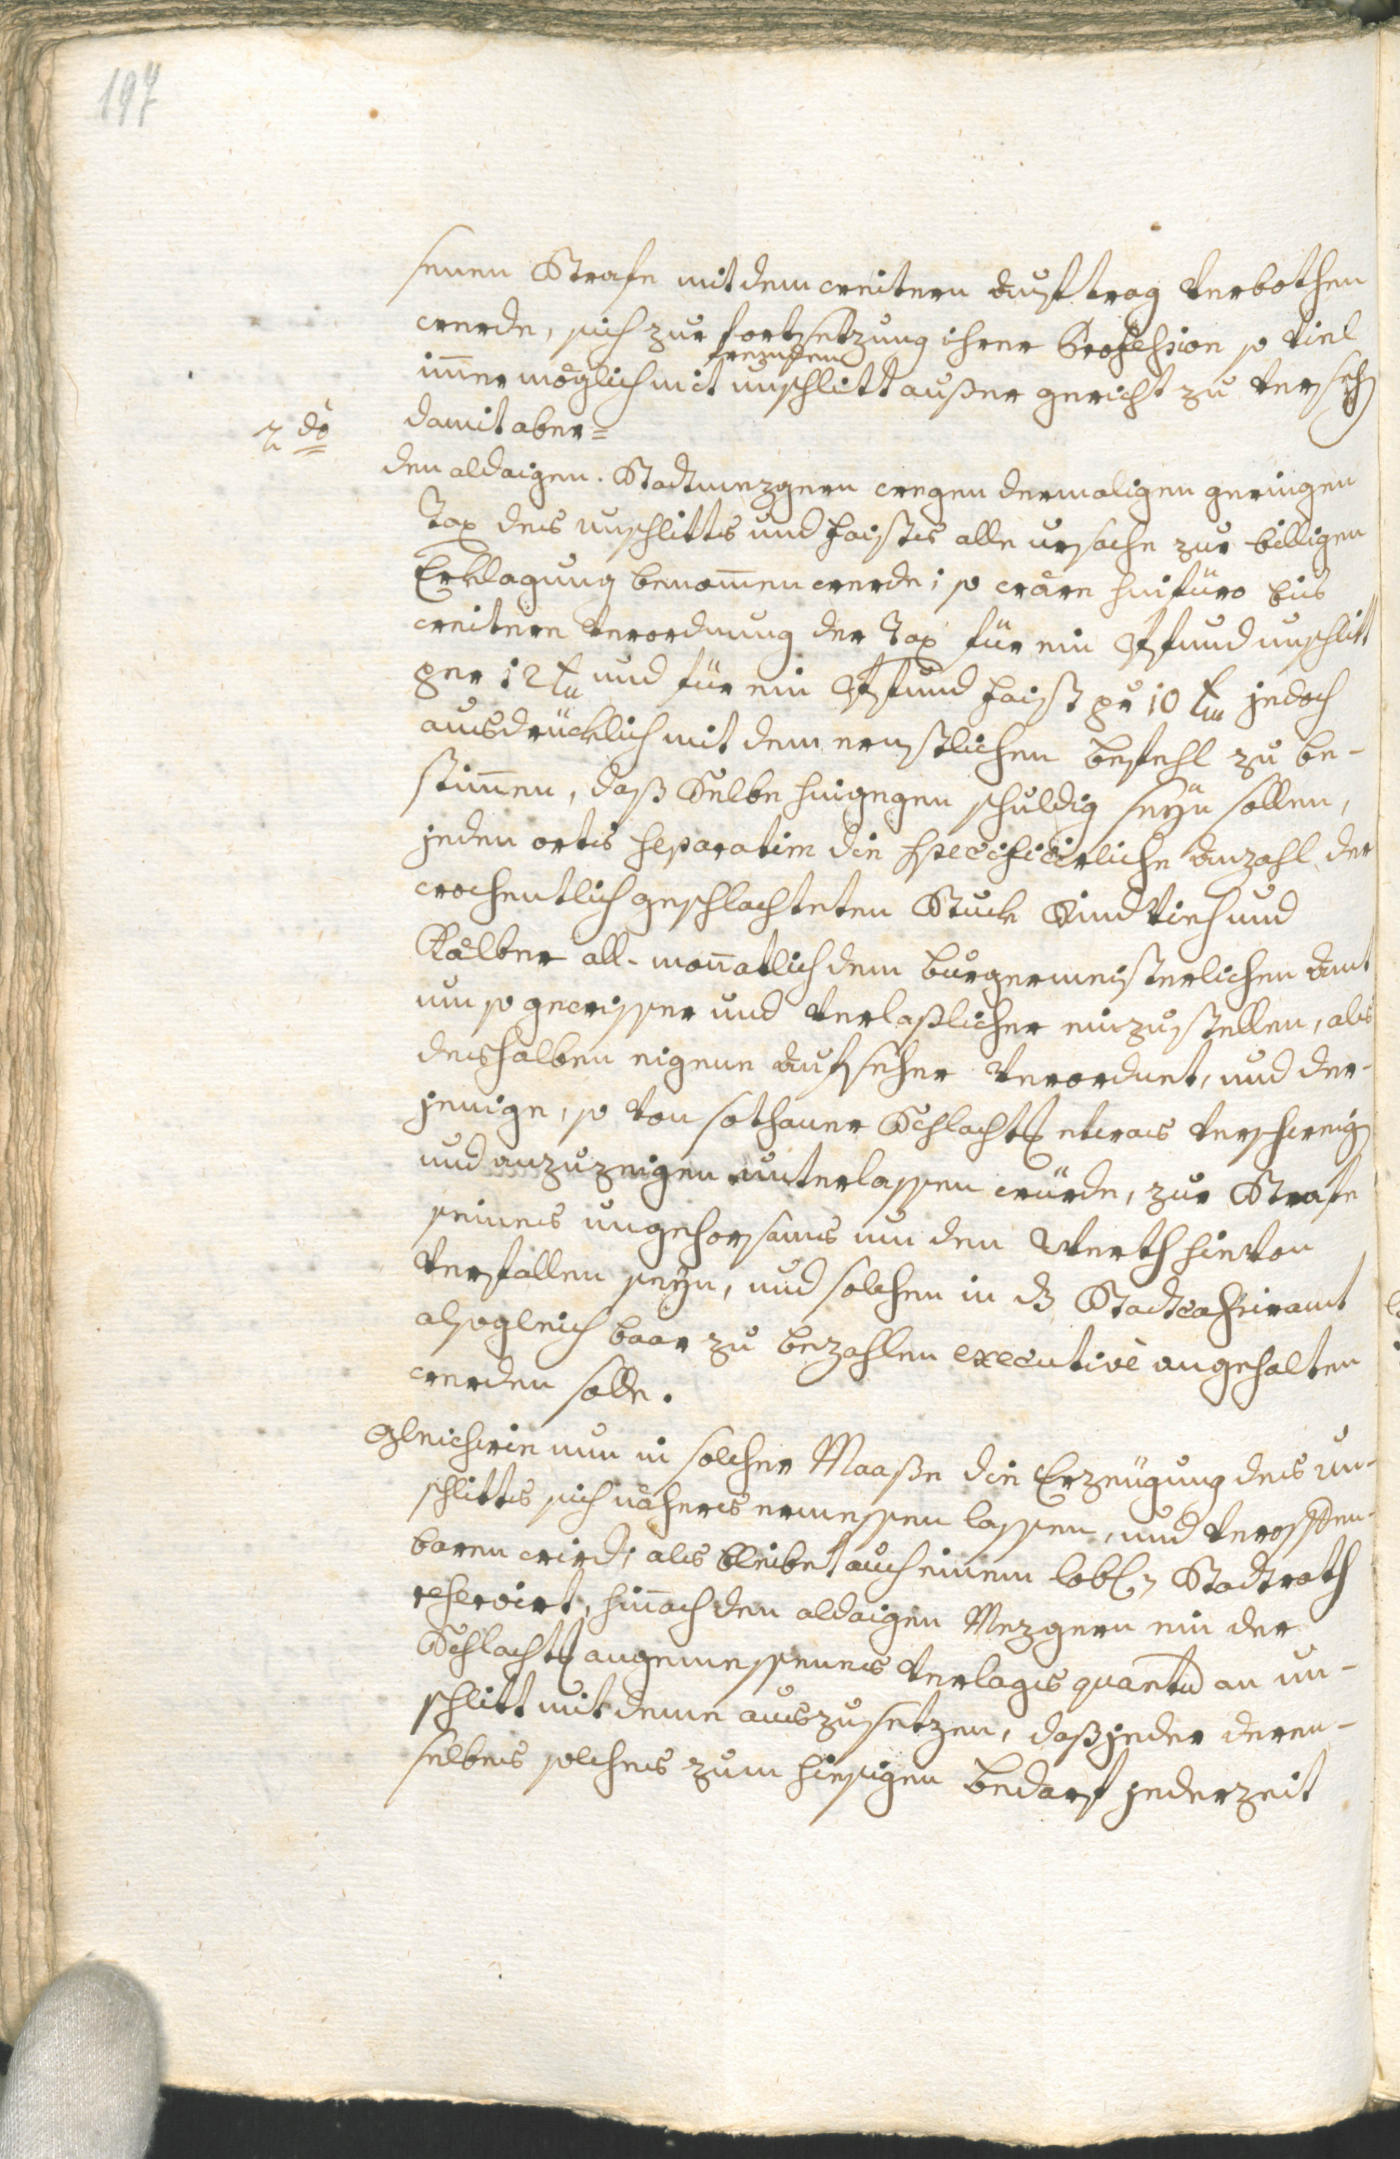 197
senen Strafe mit dem weitern Auftrag verbothen
werde, sich zur fortsetzung ihrer Profession so viel
fremdem
im̄er möglich mit unschlitt außer gericht zu versehen
2do damit aber=
den aldaigen Stadtmezgern wegen dermaligen geringen
Tax des unschlitts und faists alle ursache zur billigen
Erklagung benom̄en werde; so wäre hinfüro bis
weitere verordnung der Tax für ein Pfund unschlitt
per 12 kr und für ein Pfund faist pr 10 kr jedoch
ausdrücklich mit dem ernstlichen befehl zu be-
stim̄en, daß Selbe hingegen schuldig seÿn sollen,
jeden orts separatim die specificierliche Anzahl der
wochentlich geschlachteten Stuck Rindvieh und
Kälber all-monatlich dem burgermeisterlichen Amt
um so gewisser und verlaßlicher einzustellen, als
deshalben eigene Aufseher verordnet, und der-
jenige, so von sothaner Schlacht etwas verschweigen
und anzuzeigen unterlassen würde, zur Strafe
seines ungehorsams um den Werth hievon
verfallen seÿn, und solchen in das Stadtcassieramt
alsogleich baar zu bezahlen executivè angehalten
werden solle.
Gleichwie nun in solcher Maaße die Erzeugung des un-
schlitts sich näheres ermessen lassen, und veroffen-
baren wird, als bleibet auch einem lobl. Stadtrath
reservirt, hin̄ach den aldaigen Mezgern ein der
Schlacht angemessenes verlags quantum an un-
schlitt mit deme auszusetzen, daß jeder deren-
selben solches zum hiesigen bedarf jederzeit